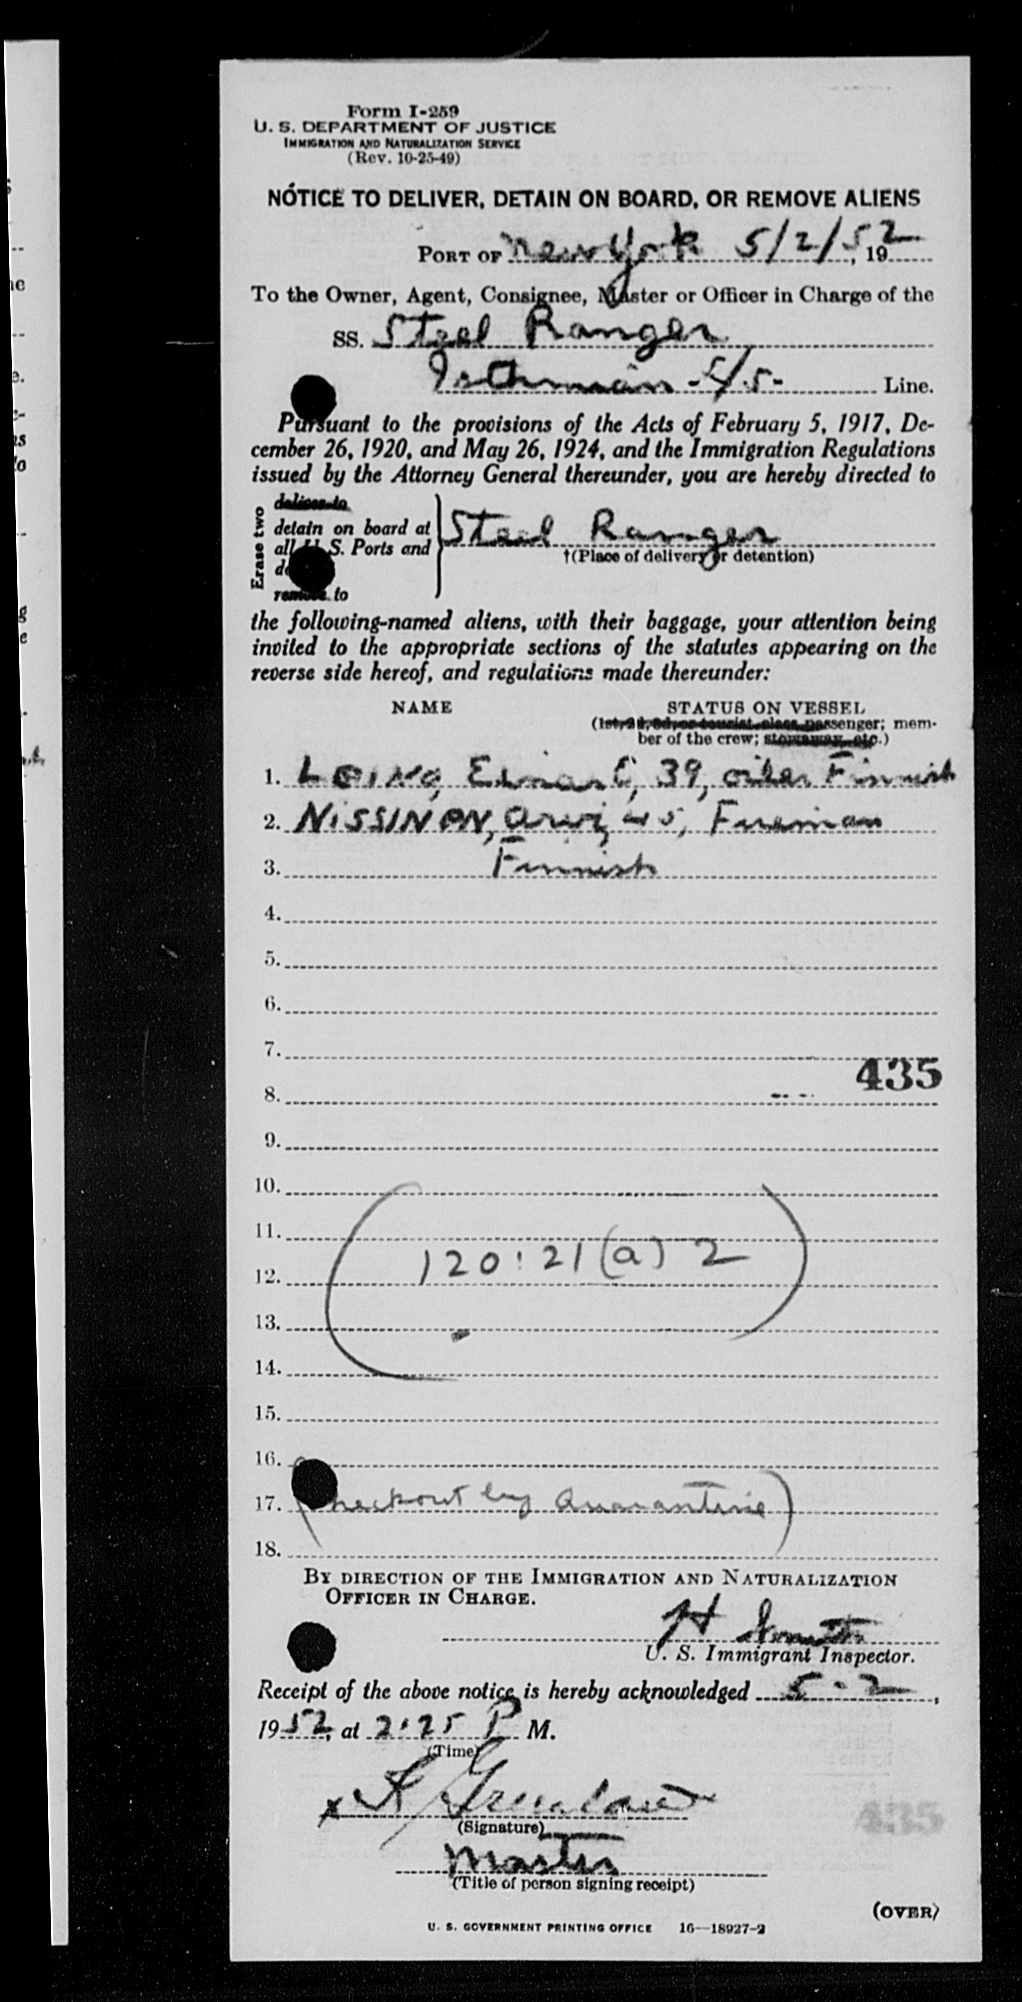 Form I-259
U. S. DEPARTMENT OF JUSTICE
IMMIGRATION AND NATURALIZATION SERVICE
(Rev. 10-25-49)
NOTICE TO DELIVER, DETAIN ON BOARD, OR REMOVE ALIENS
PORT OF New York 5/2/52, 19
To the Owner, Agent, Consignee, Master or Officer in Charge of the
SS. Steel Ranger
Isthmian S/S Line.
Pursuant to the provisions of the Acts of February 5, 1917, De-
cember 26, 1920, and May 26, 1924, and the Immigration Regulations
issued by the Attorney General thereunder, you are hereby directed to
Erase two
deliver to
detain on board at Steel Ranger
all U. S. Ports and †(Place of delivery or detention)
remove to
the following-named aliens, with their baggage, your attention being
invited to the appropriate sections of the statutes appearing on the
reverse side hereof, and regulations made thereunder:
NAME STATUS ON VESSEL
(1st, 2d, 3d, or tourist class passenger; mem-
ber of the crew; stowaway, etc.)
1. Einar C, 39, oiler Finnish
2. NISSINEN, Arvi, 45, Fireman
3. Finnish
4.
5.
6.
7.
435
8.
9.
10.
11.
120:21(a) 2
12.
13.
14.
15.
16.
17. (Checkout by Quarantine)
18.
BY DIRECTION OF THE IMMIGRATION AND NATURALIZATION
OFFICER IN CHARGE.
H
U. S. Immigrant Inspector.
Receipt of the above notice is hereby acknowledged 5-2,
1952, at 2:25 P M.
(Time)
x K
(Signature)
Master
(Title of person signing receipt)
435
(OVER)
U. S. GOVERNMENT PRINTING OFFICE 16—18927-2